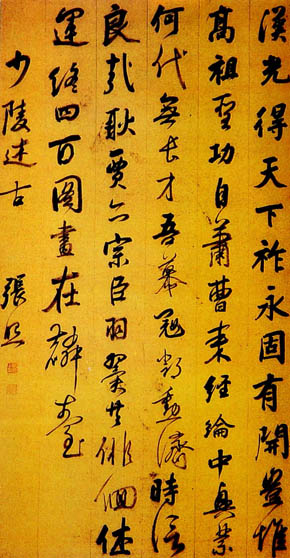 漢光得天下祚永固有開豈惟
高祖聖功自蕭曹来經綸中興業
何代無長才吾慕寇鄧勳濟時信
良哉耿賈亦宗臣羽翼共徘徊休
運終四百圖畫在麟臺
少陵述古 張照